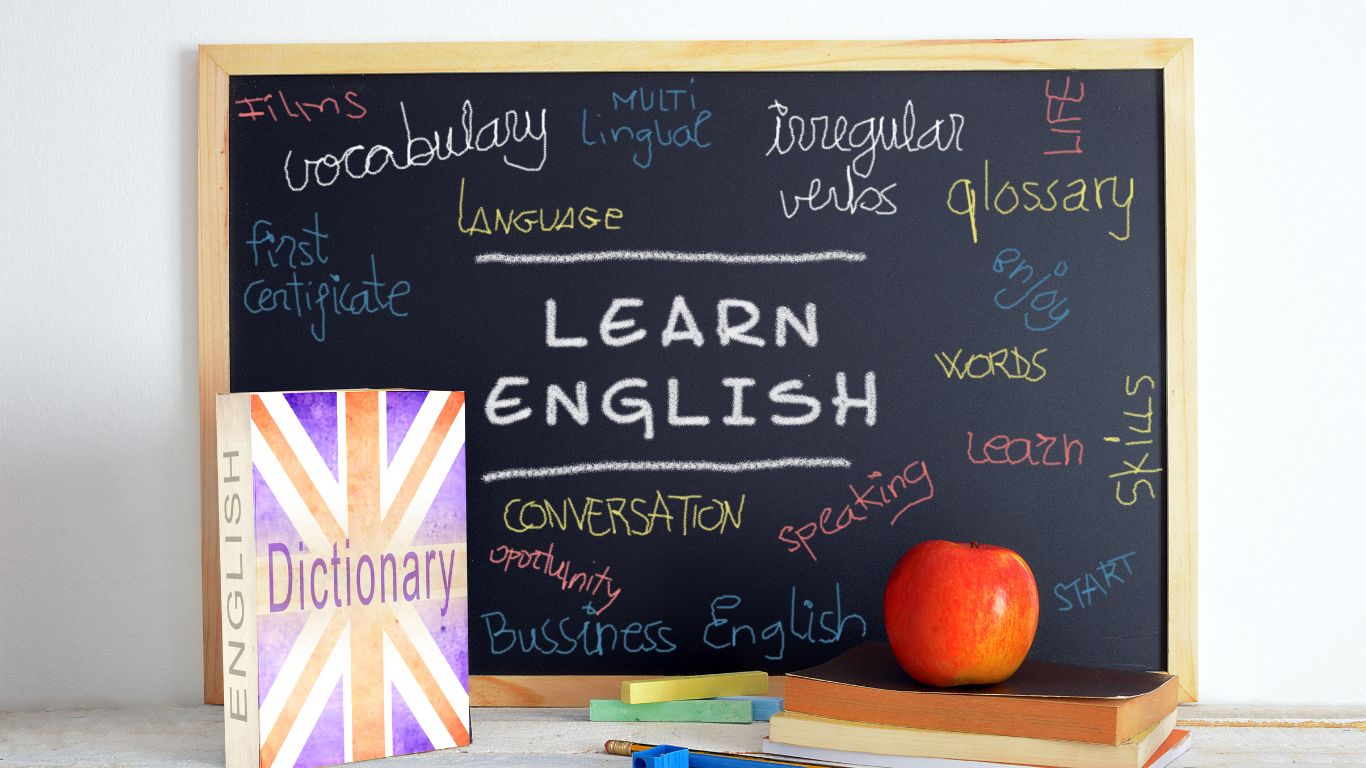 Films
vocabulary
MULTi
lingual
irregular
verbs
LIFE
LANGUAGe
glossary
first
certificate
enjoy
LEARN
ENGLISH
WORDS
Learn
SkiLLS
CONVERSATiON
speaking
oportunity
START
Bussiness English
ENGLISH
Dictionary